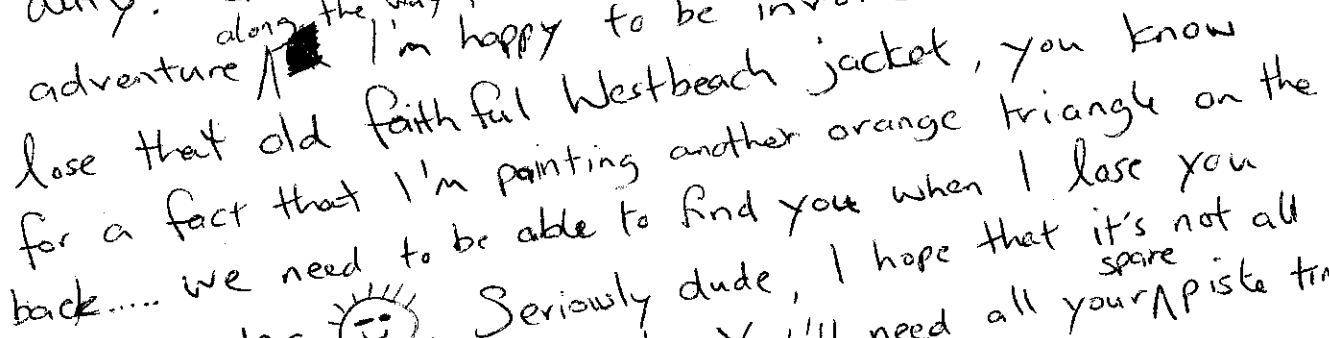 along the way
adventure I'm happy to be
lose that old faithful Westbeach jacket, you know
for a fact that I'm painting another orange triangle on the
back..... we need to be able to find you when I lose you
Seriously dude, I hope that it's not all
spare
need all your piste